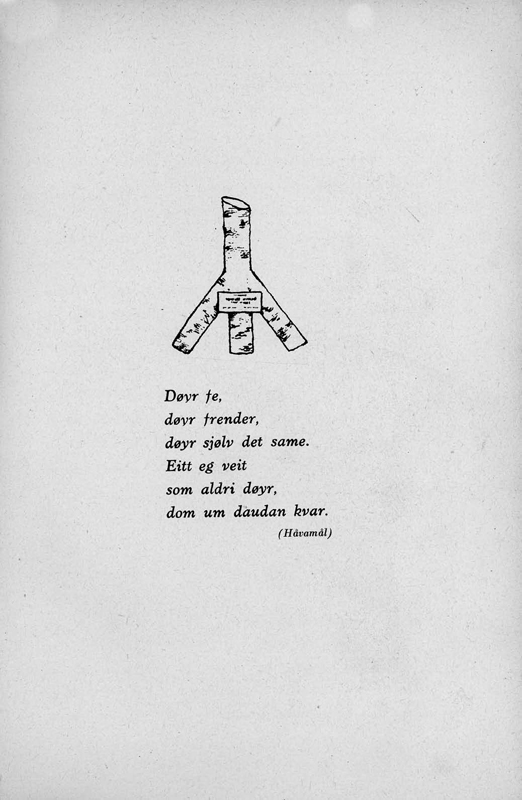 Døyr fe,
døyr frender,
døyr sjølv det same.
Eitt eg veit
som aldri døyr,
dom um daudan kvar.
(Håvamål)